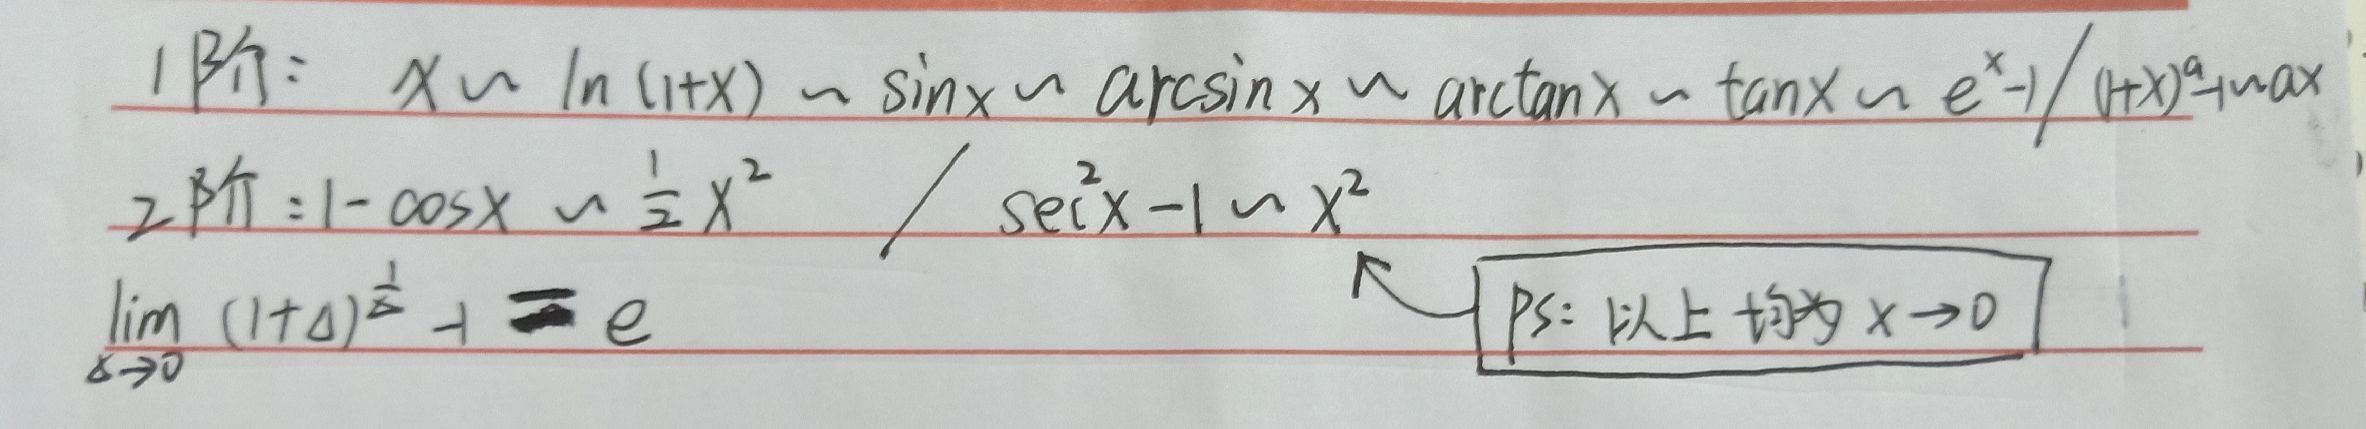 1阶: x ~ ln(1+x) ~ sinx ~ arcsinx ~ arctanx ~ tanx ~ eˣ-1 / (1+x)ᵃ-1~ax
2阶: 1-cosx ~ ½x² / sec²x-1 ~ x²
lim (1+Δ)^(1/Δ) -1 = e
Δ→0
PS: 以上均为 x→0